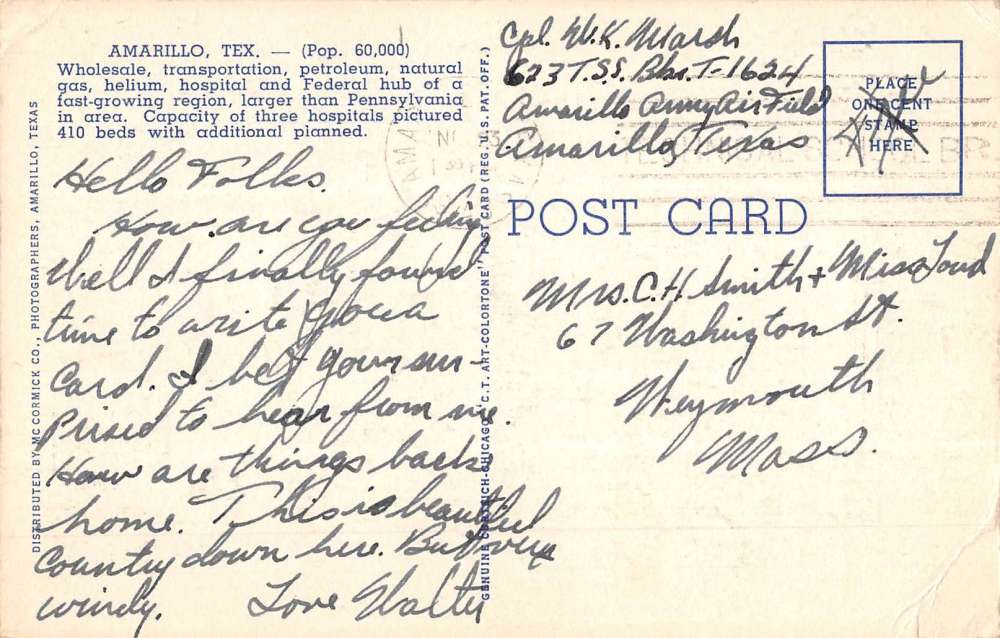 AMARILLO, TEX. — (Pop. 60,000)
Wholesale, transportation, petroleum, natural
gas, helium, hospital and Federal hub of a
fast-growing region, larger than Pennsylvania
in area. Capacity of three hospitals pictured
410 beds with additional planned.
Hello Folks.
How are you feeling
Well I finally found
time to write you a
Card. I bet your sur-
prised to hear from me.
How are things back
home. This is beautiful
Country down here. But very
windy. Love Walter
DISTRIBUTED BY MC CORMICK CO., PHOTOGRAPHERS, AMARILLO, TEXAS
GENUINE CURTEICH-CHICAGO "C.T. ART-COLORTONE" POST CARD (REG. U.S. PAT. OFF.)
Cpl. W.K. Marsh
623 T.S.S. Bks. T-1624
Amarillo Army Air Field
Amarillo, Texas
PLACE
ONE CENT
STAMP
HERE
Free
POST CARD
Mrs. C.H. Smith + Miss
67 Washington St.
Weymouth
Mass.